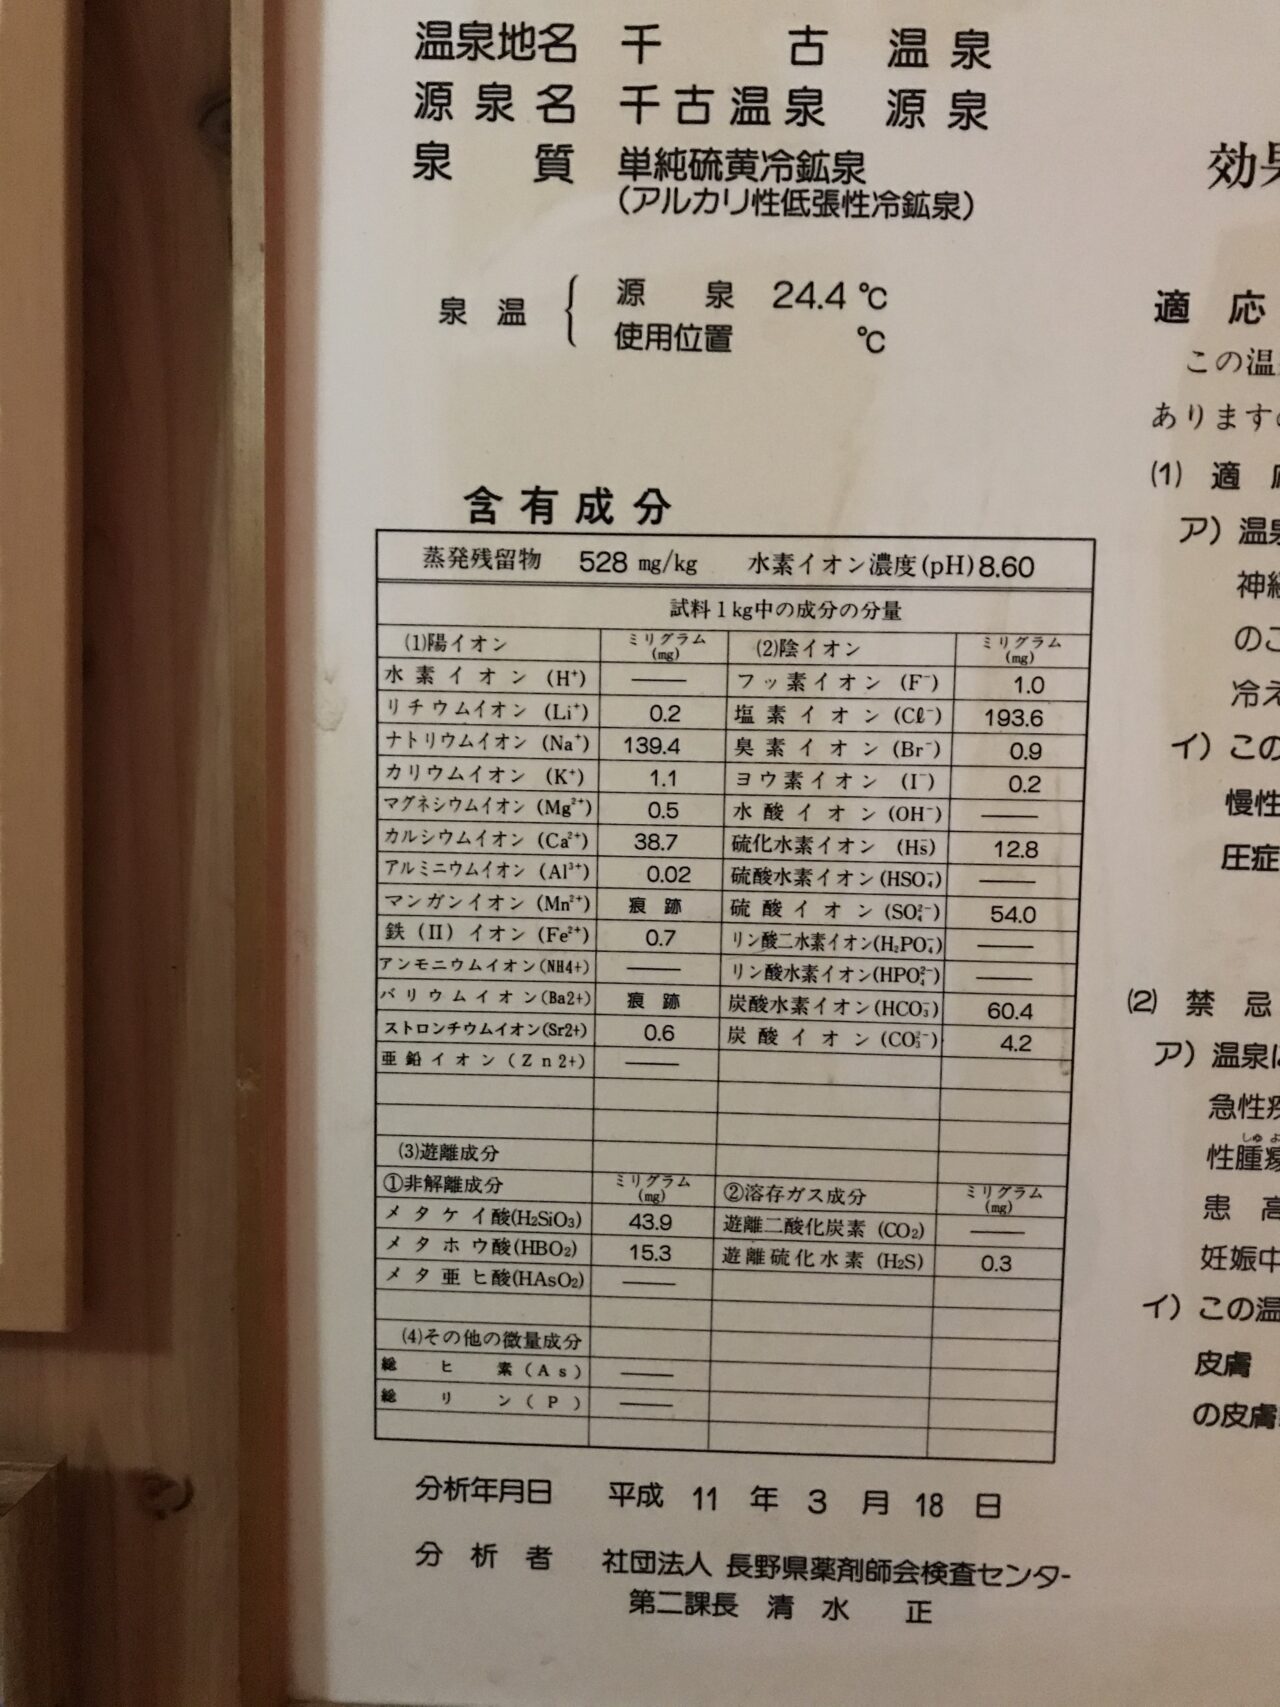 温泉地名 千古温泉
源泉名 千古温泉 源泉
泉質 単純硫黄冷鉱泉
(アルカリ性低張性冷鉱泉)
効果
泉温 源泉 24.4 ℃
使用位置 ℃
含有成分
蒸発残留物 528 mg/kg 水素イオン濃度(pH)8.60
試料1kg中の成分の分量
(1)陽イオン ミリグラム(mg) (2)陰イオン ミリグラム(mg)
水素イオン (H⁺) —— フッ素イオン (F⁻) 1.0
リチウムイオン (Li⁺) 0.2 塩素イオン (Cℓ⁻) 193.6
ナトリウムイオン (Na⁺) 139.4 臭素イオン (Br⁻) 0.9
カリウムイオン (K⁺) 1.1 ヨウ素イオン (I⁻) 0.2
マグネシウムイオン (Mg²⁺) 0.5 水酸イオン (OH⁻) ——
カルシウムイオン (Ca²⁺) 38.7 硫化水素イオン (Hs⁻) 12.8
アルミニウムイオン (Al³⁺) 0.02 硫酸水素イオン(HSO₄⁻) ——
マンガンイオン (Mn²⁺) 痕跡 硫酸イオン (SO₄²⁻) 54.0
鉄(II)イオン (Fe²⁺) 0.7 リン酸二水素イオン(H₂PO₄⁻) ——
アンモニウムイオン(NH4+) —— リン酸水素イオン(HPO₄²⁻) ——
バリウムイオン(Ba2+) 痕跡 炭酸水素イオン(HCO₃⁻) 60.4
ストロンチウムイオン(Sr2+) 0.6 炭酸イオン (CO₃²⁻) 4.2
亜鉛イオン(Zn2+) ——
(3)遊離成分
①非解離成分 ミリグラム(mg) ②溶存ガス成分 ミリグラム(mg)
メタケイ酸(H₂SiO₃) 43.9 遊離二酸化炭素 (CO₂) ——
メタホウ酸(HBO₂) 15.3 遊離硫化水素 (H₂S) 0.3
メタ亜ヒ酸(HAsO₂) ——
(4)その他の微量成分
総ヒ素(As) ——
総リン(P) ——
分析年月日 平成 11 年 3 月 18 日
分析者 社団法人 長野県薬剤師会検査センター
第二課長 清水 正
適応
この温
ありますの
(1) 適
ア) 温泉
神経
のこ
冷え
イ) この
慢性
圧症
(2) 禁忌
ア) 温泉
急性疾
性腫瘍
患 高
妊娠中
イ) この温
皮膚
の皮膚